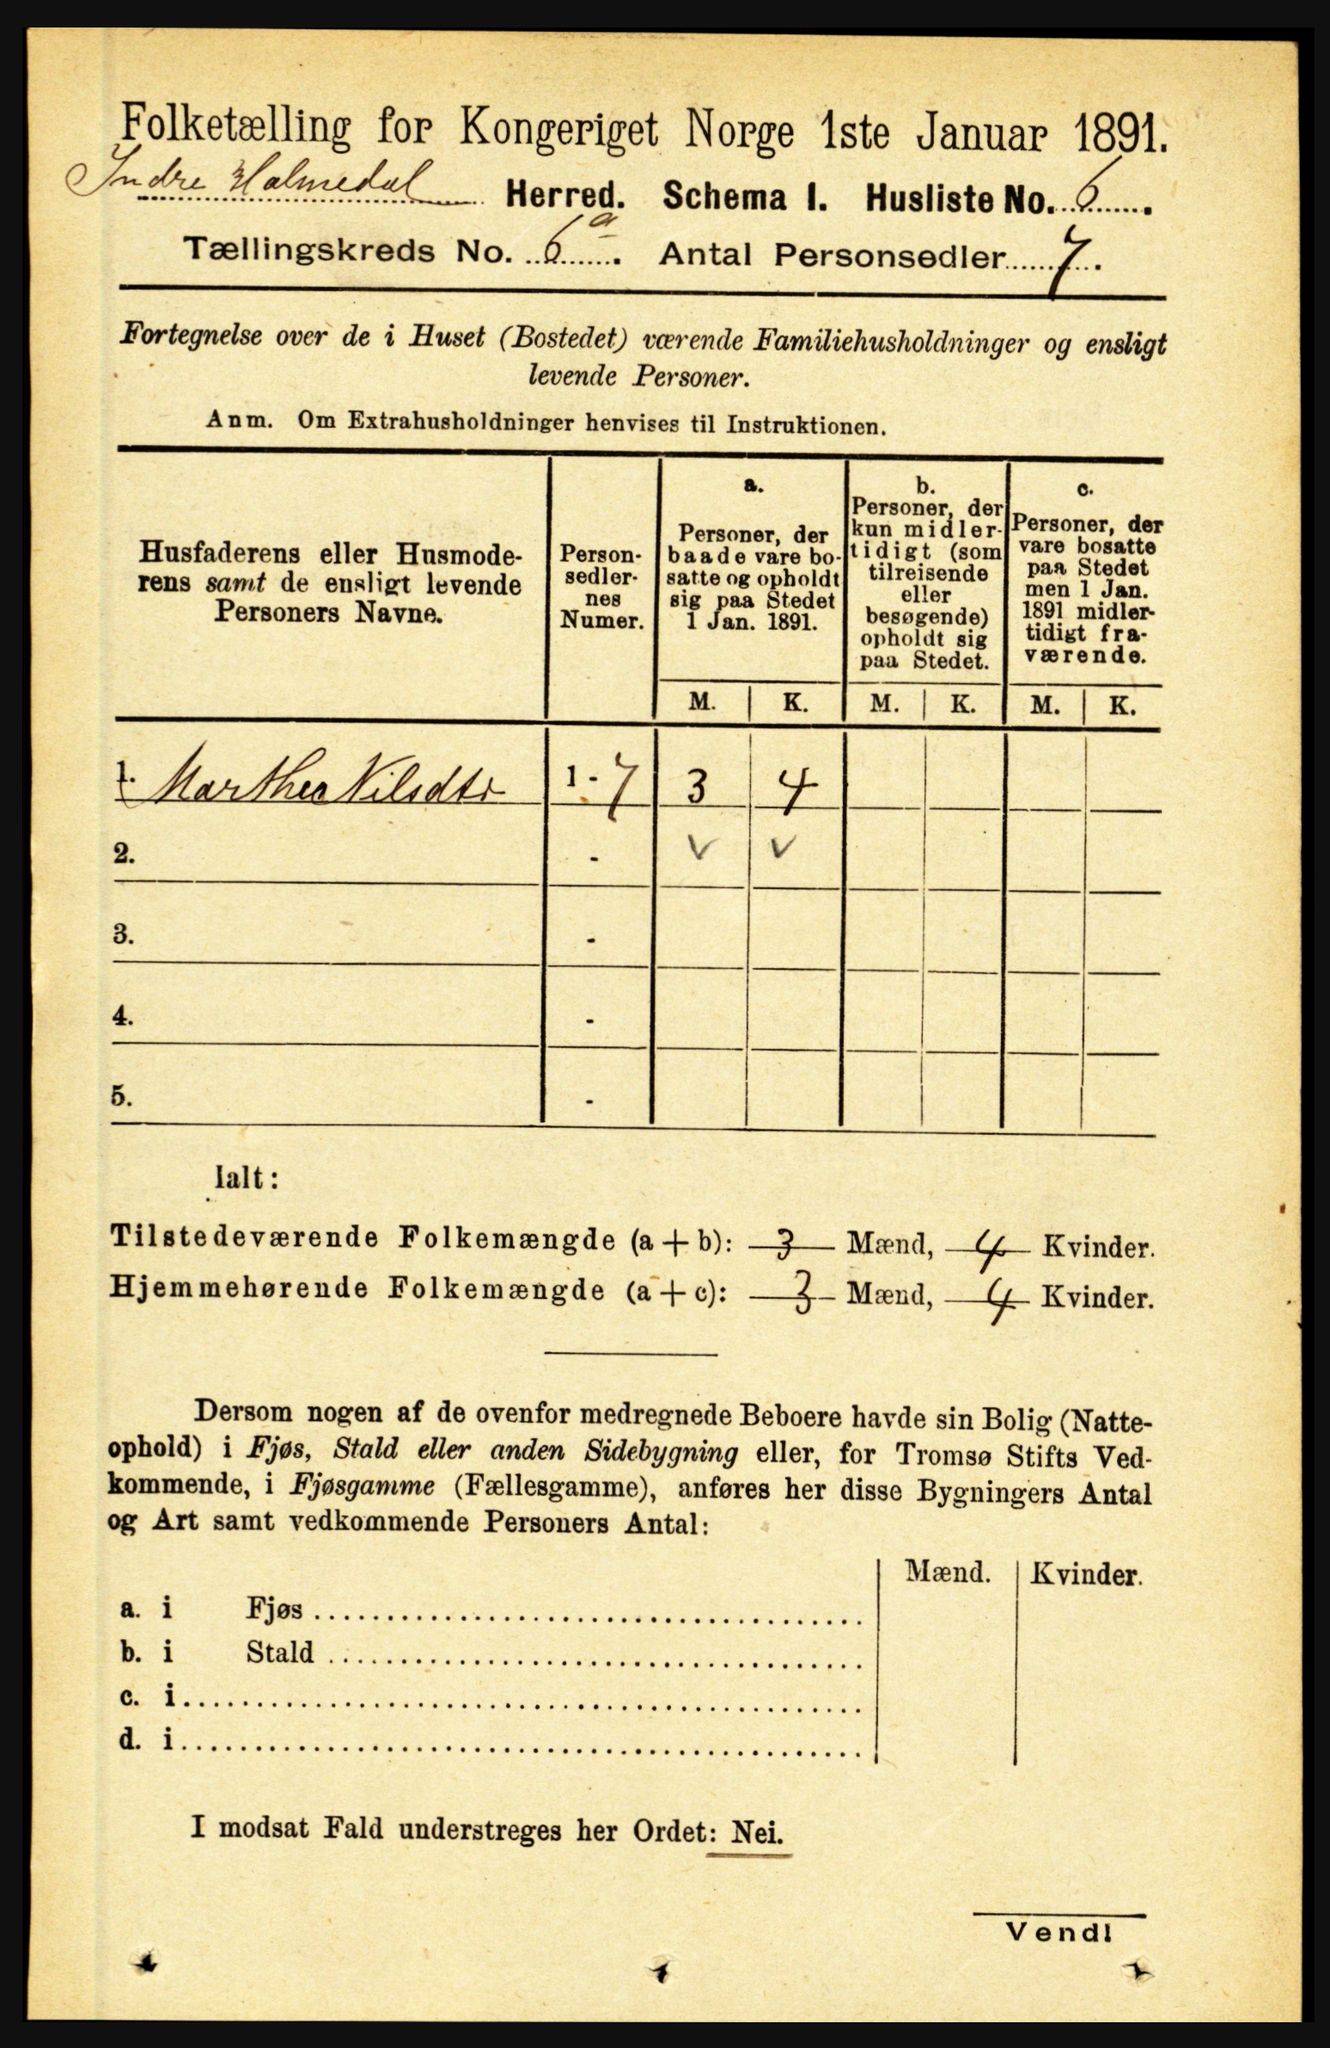 Folketælling for Kongeriget Norge 1ste Januar 1891.
Indre Holmedal Herred. Schema I. Husliste No. 6.
Tællingskreds No. 6a. Antal Personsedler 7.
Fortegnelse over de i Huset (Bostedet) værende Familiehusholdninger og ensligt
levende Personer.
Anm. Om Extrahusholdninger henvises til Instruktionen.
Husfaderens eller Husmode-
rens samt de ensligt levende
Personers Navne.
Person-
sedler-
nes
Numer.
a.
Personer, der
baade vare bo-
satte og opholdt
sig paa Stedet
1 Jan. 1891.
b.
Personer, der
kun midler-
tidigt (som
tilreisende
eller
besøgende)
opholdt sig
paa Stedet.
c.
Personer, der
vare bosatte
paa Stedet
men 1 Jan.
1891 midler-
tidigt fra-
værende.
M. K. M. K. M. K.
1. Marthea Nilsdtr 1 - 7 3 4
2. - v v
3. -
4. -
5. -
Ialt:
Tilstedeværende Folkemængde (a + b): 3 Mænd, 4 Kvinder.
Hjemmehørende Folkemængde (a + c): 3 Mænd, 4 Kvinder.
Dersom nogen af de ovenfor medregnede Beboere havde sin Bolig (Natte-
ophold) i Fjøs, Stald eller anden Sidebygning eller, for Tromsø Stifts Ved-
kommende, i Fjøsgamme (Fællesgamme), anføres her disse Bygningers Antal
og Art samt vedkommende Personers Antal:
Mænd. Kvinder.
a. i Fjøs
b. i Stald
c. i
d. i
I modsat Fald understreges her Ordet: Nei.
Vend!